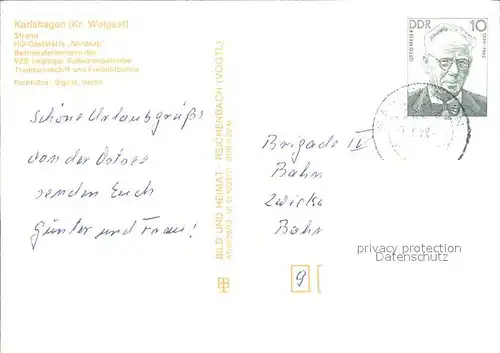 Karlshagen (Kr. Wolgast)
Strand
HO-Gaststätte „Nordkap“
Betriebsferienheim der
VEB Leipziger Baumwollspinnerei
Traditionsschiff und Freilichtbühne
schöne Urlaubsgrüße
von der Ostsee
senden Euch
Günter und Frau!
BILD UND HEIMAT REICHENBACH (VOGTL)
DDR 10
OTTO MEIER
Brigade IV
Bahn
Zwicke
Bahn
9
privacy protection
Datenschutz